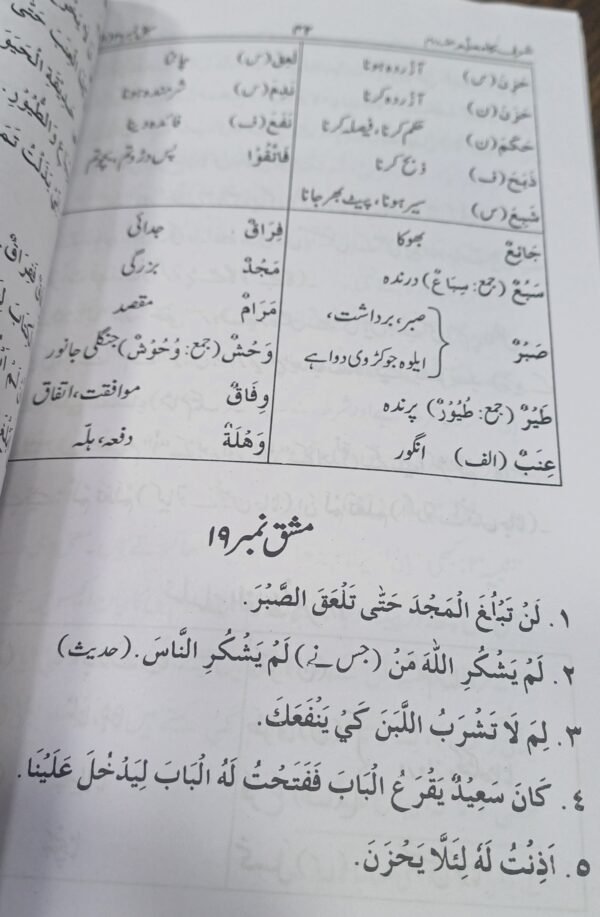 ۳۴
حَزِنَ (س) آزردہ ہونا
لَعِقَ (س) چاٹنا
حَزَنَ (ن) آزردہ کرنا
نَدِمَ (س) شرمندہ ہونا
حَكَمَ (ن) حکم کرنا، فیصلہ کرنا
نَفَعَ (ف) فائدہ دینا
ذَبَحَ (ف) ذبح کرنا
فَاتَّقُوْا پس ڈرو تم، بچو تم
شَبِعَ (س) سیر ہونا، پیٹ بھر جانا
جَائِعٌ بھوکا
فِرَاقٌ جدائی
سَبُعٌ (جمع: سِبَاعٌ) درندہ
مَجْدٌ بزرگی
صَبْرٌ صبر، برداشت،
ایلوہ جو کڑوی دوا ہے
مَرَامٌ مقصد
وَحْشٌ (جمع: وُحُوْشٌ) جنگلی جانور
طَيْرٌ (جمع: طُيُوْرٌ) پرندہ
وِفَاقٌ موافقت، اتفاق
عِنَبٌ (الف) انگور
وَهْلَةٌ دفعہ، ہلّہ
مشق نمبر ۱۹
۱. لَنْ تَبْلُغَ الْمَجْدَ حَتّٰى تَلْعَقَ الصَّبْرَ.
۲. لَمْ يَشْكُرِ اللّٰهَ مَنْ (جس نے) لَمْ يَشْكُرِ النَّاسَ. (حدیث)
۳. لِمَ لَا تَشْرَبُ اللَّبَنَ كَيْ يَنْفَعَكَ.
۴. كَانَ سَعِيْدٌ يَقْرَعُ الْبَابَ فَفَتَحْتُ لَهُ الْبَابَ لِيَدْخُلَ عَلَيْنَا.
۵. اَذِنْتُ لَهٗ لِئَلَّا يَحْزَنَ.